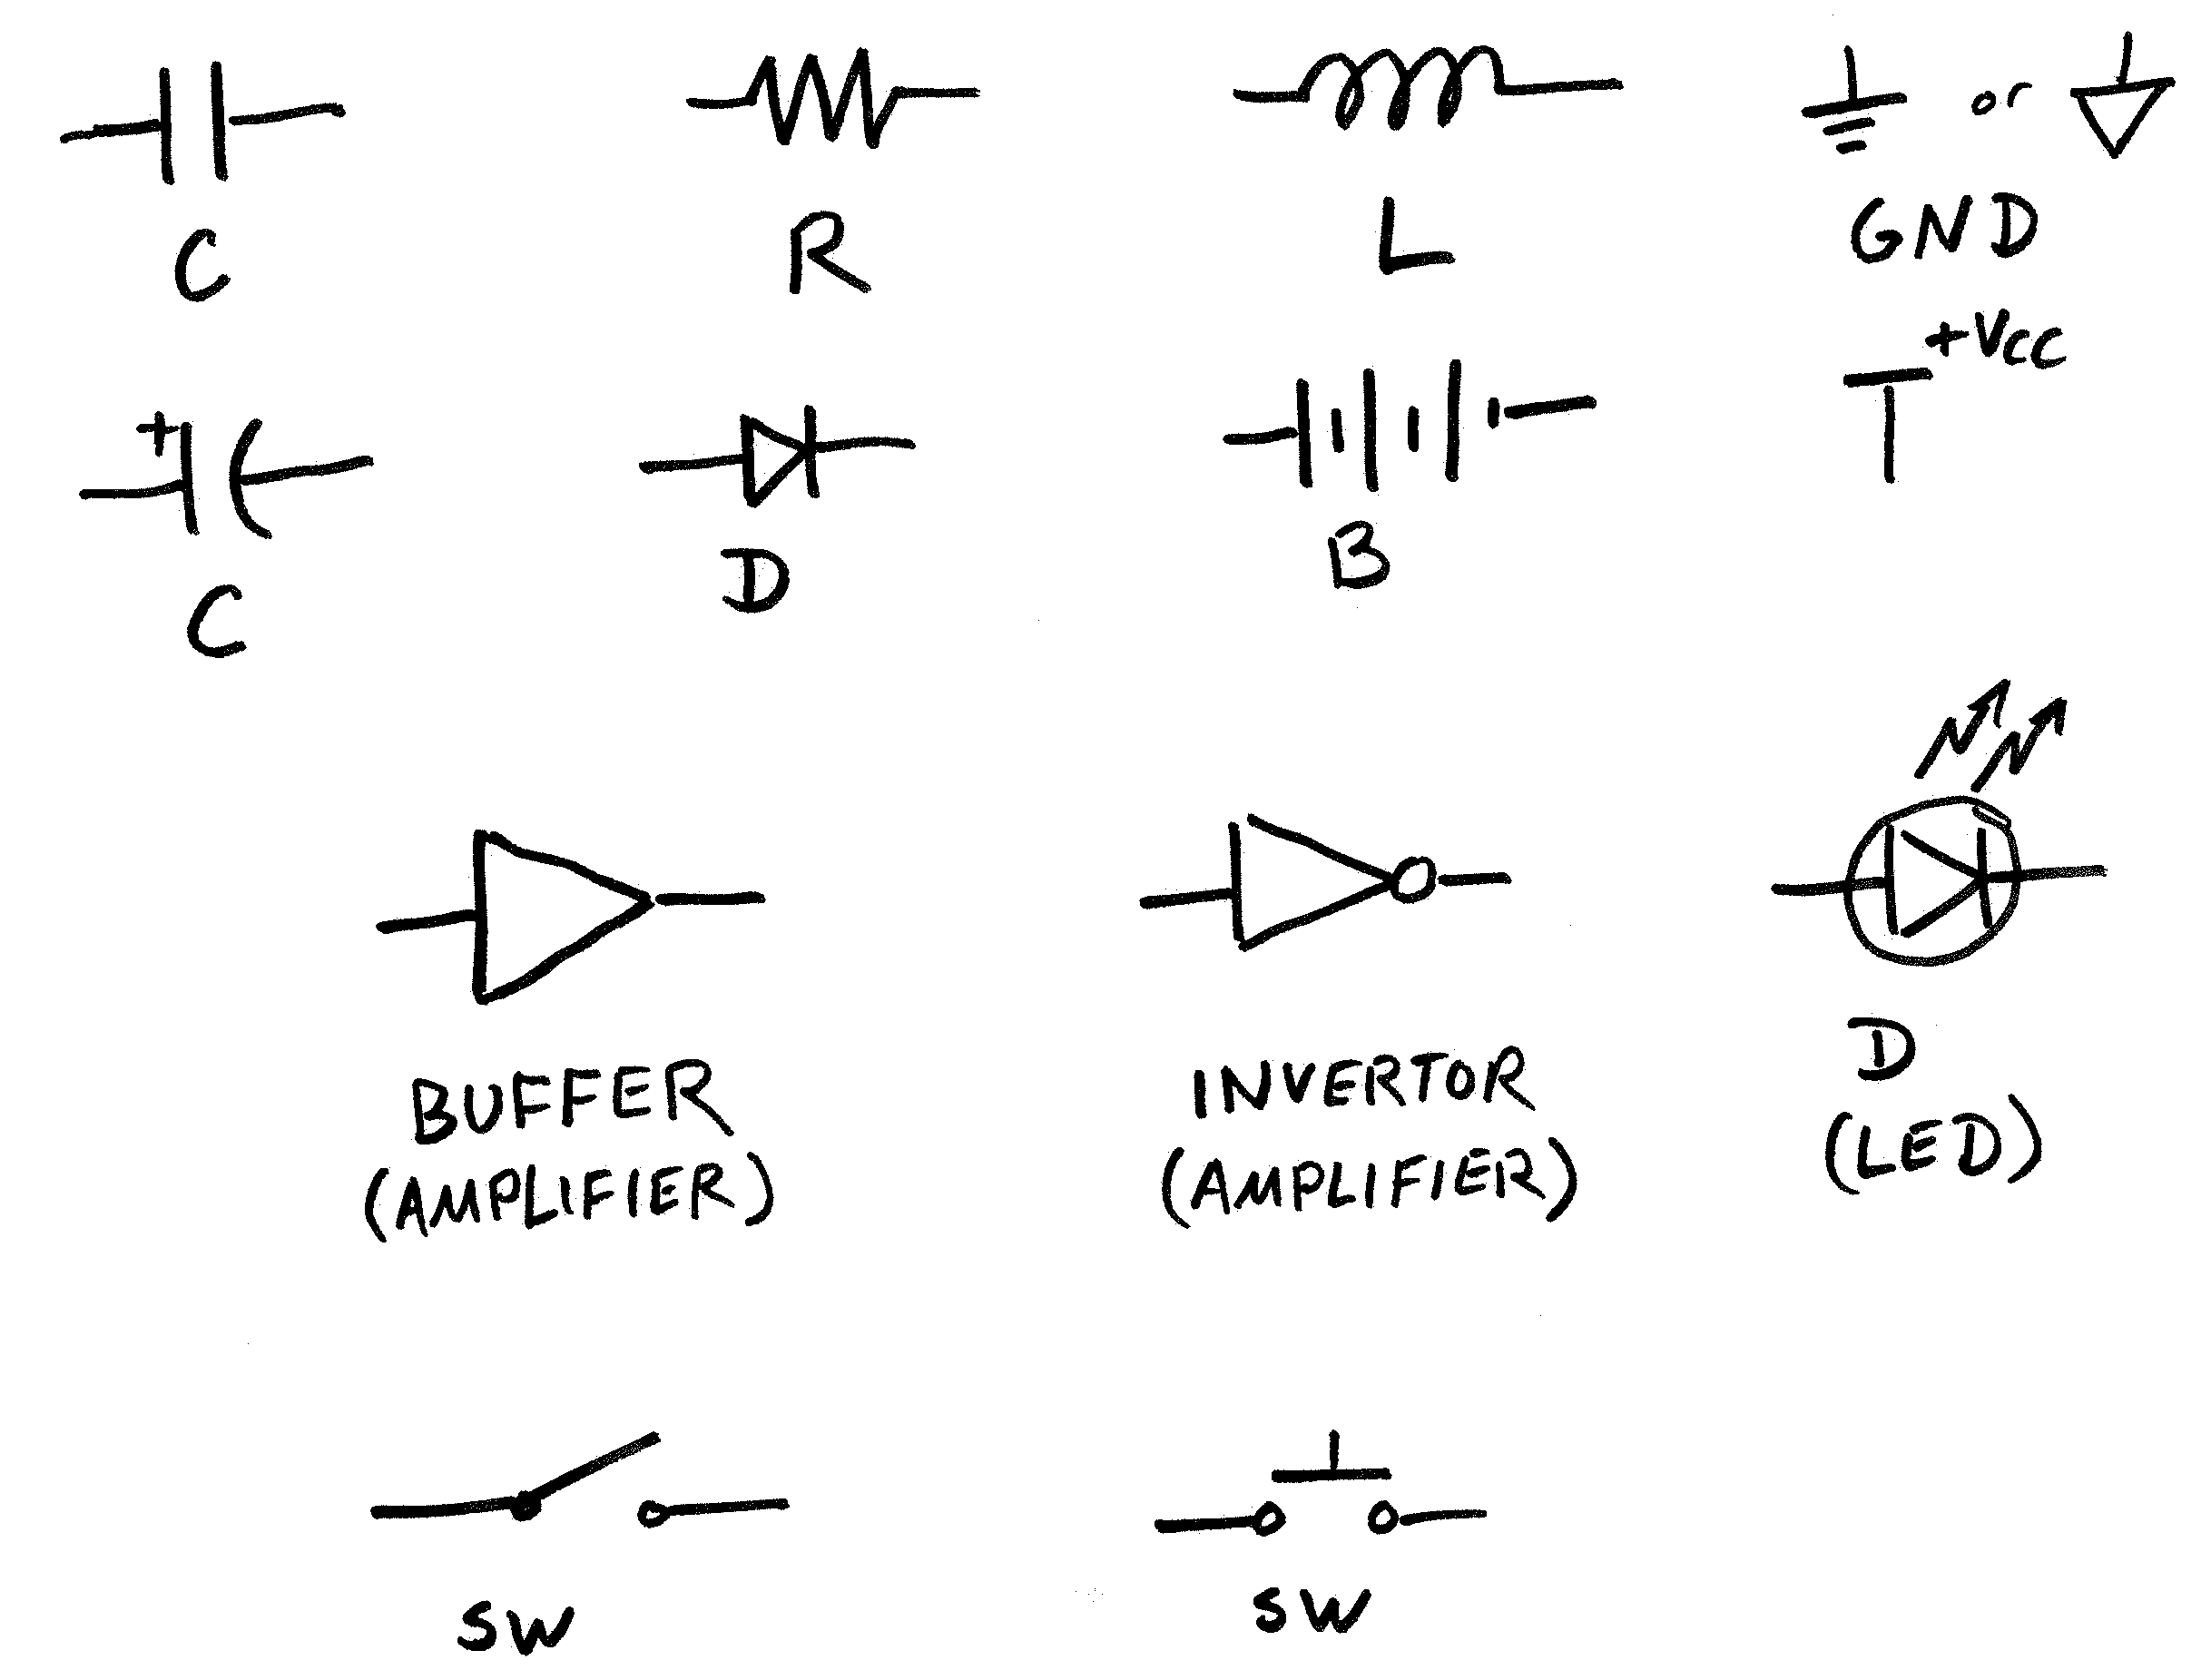 or
C
R
L
GND
+
+Vcc
C
D
B
BUFFER
(AMPLIFIER)
INVERTOR
(AMPLIFIER)
D
(LED)
SW
SW